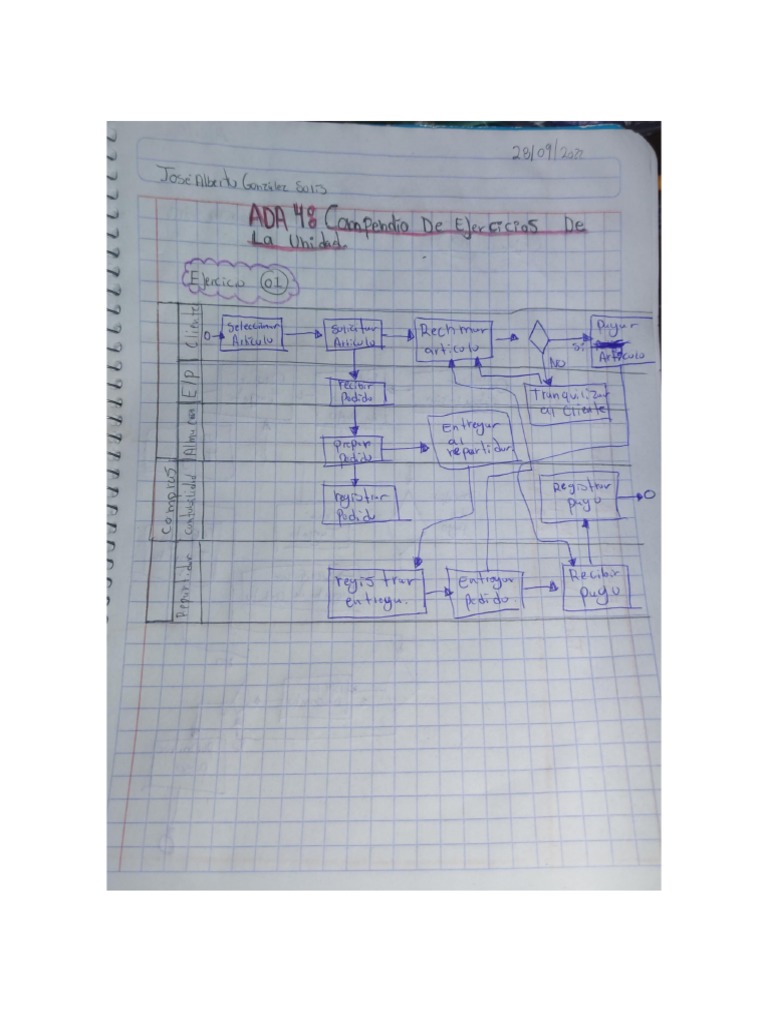 28/09/2022
José Alberto González Solís
ADA 48 Compendio De Ejercicios De
La Unidad.
Ejercicio 01
Compras
Cliente
Seleccionar
Artículo
Solicitar
Artículo
Rechmar
artículo
Si
NO
Pagar
Artículo
E/P
recibir
Pedido
Tranquilizar
al cliente
Almacen
prepar
Pedido
Entregar
al
repartidor
Contabilidad
registrar
Pedido
Registrar
pago
Repartidor
registrar
entrega.
Entregar
Pedido
Recibir
pago